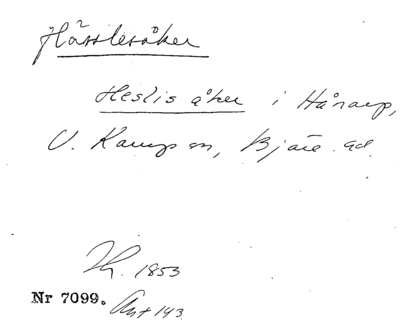 Hässlesåker
Heslis åker i Håarp,
V. Karup sn, Bjäre hd.
Th. 1853
Nr 7099. Ant 143